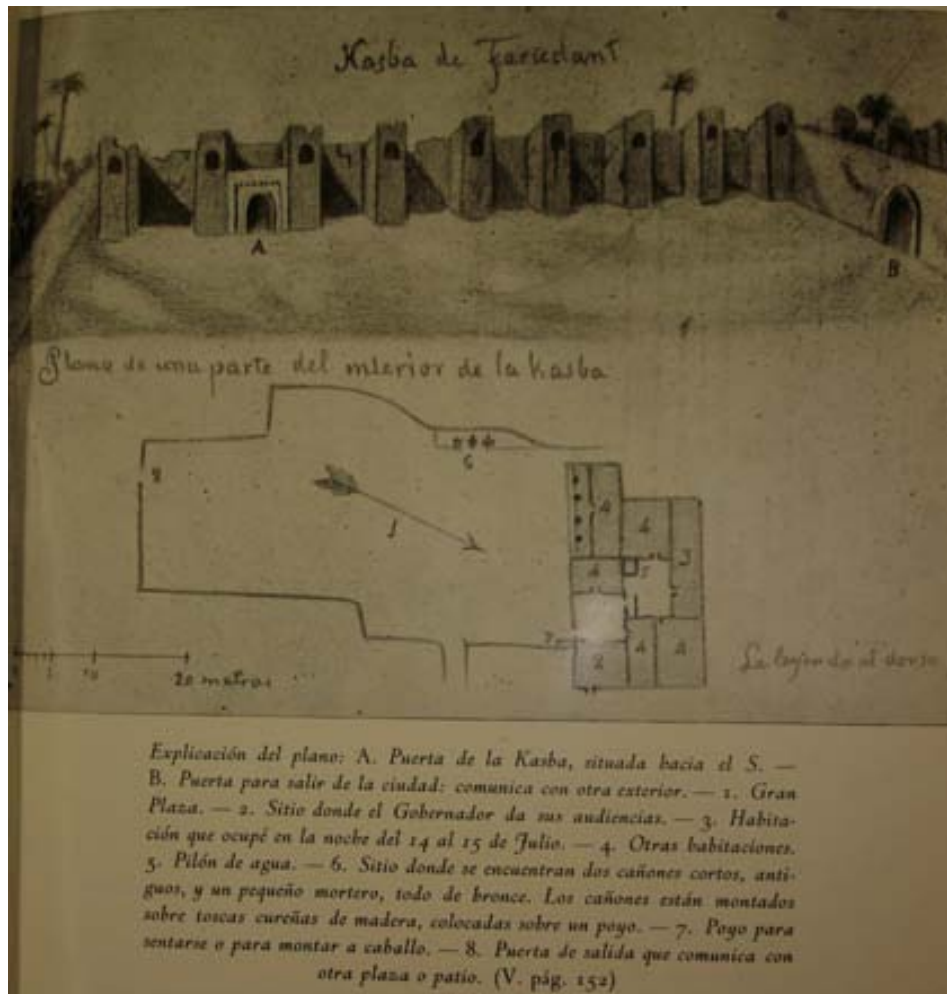 Kasba de Tariedant
A
B
Plano de una parte del interior de la Kasba
8
6
1
4
4
3
4
5
7
2
4
2
20 metros
La leyenda al dorso
Explicación del plano: A. Puerta de la Kasba, situada hacia el S. —
B. Puerta para salir de la ciudad: comunica con otra exterior. — 1. Gran
Plaza. — 2. Sitio donde el Gobernador da sus audiencias. — 3. Habita-
ción que ocupé en la noche del 14 al 15 de Julio. — 4. Otras habitaciones.
5. Pilón de agua. — 6. Sitio donde se encuentran dos cañones cortos, anti-
guos, y un pequeño mortero, todo de bronce. Los cañones están montados
sobre toscas cureñas de madera, colocadas sobre un poyo. — 7. Poyo para
sentarse o para montar a caballo. — 8. Puerta de salida que comunica con
otra plaza o patio. (V. pág. 152)